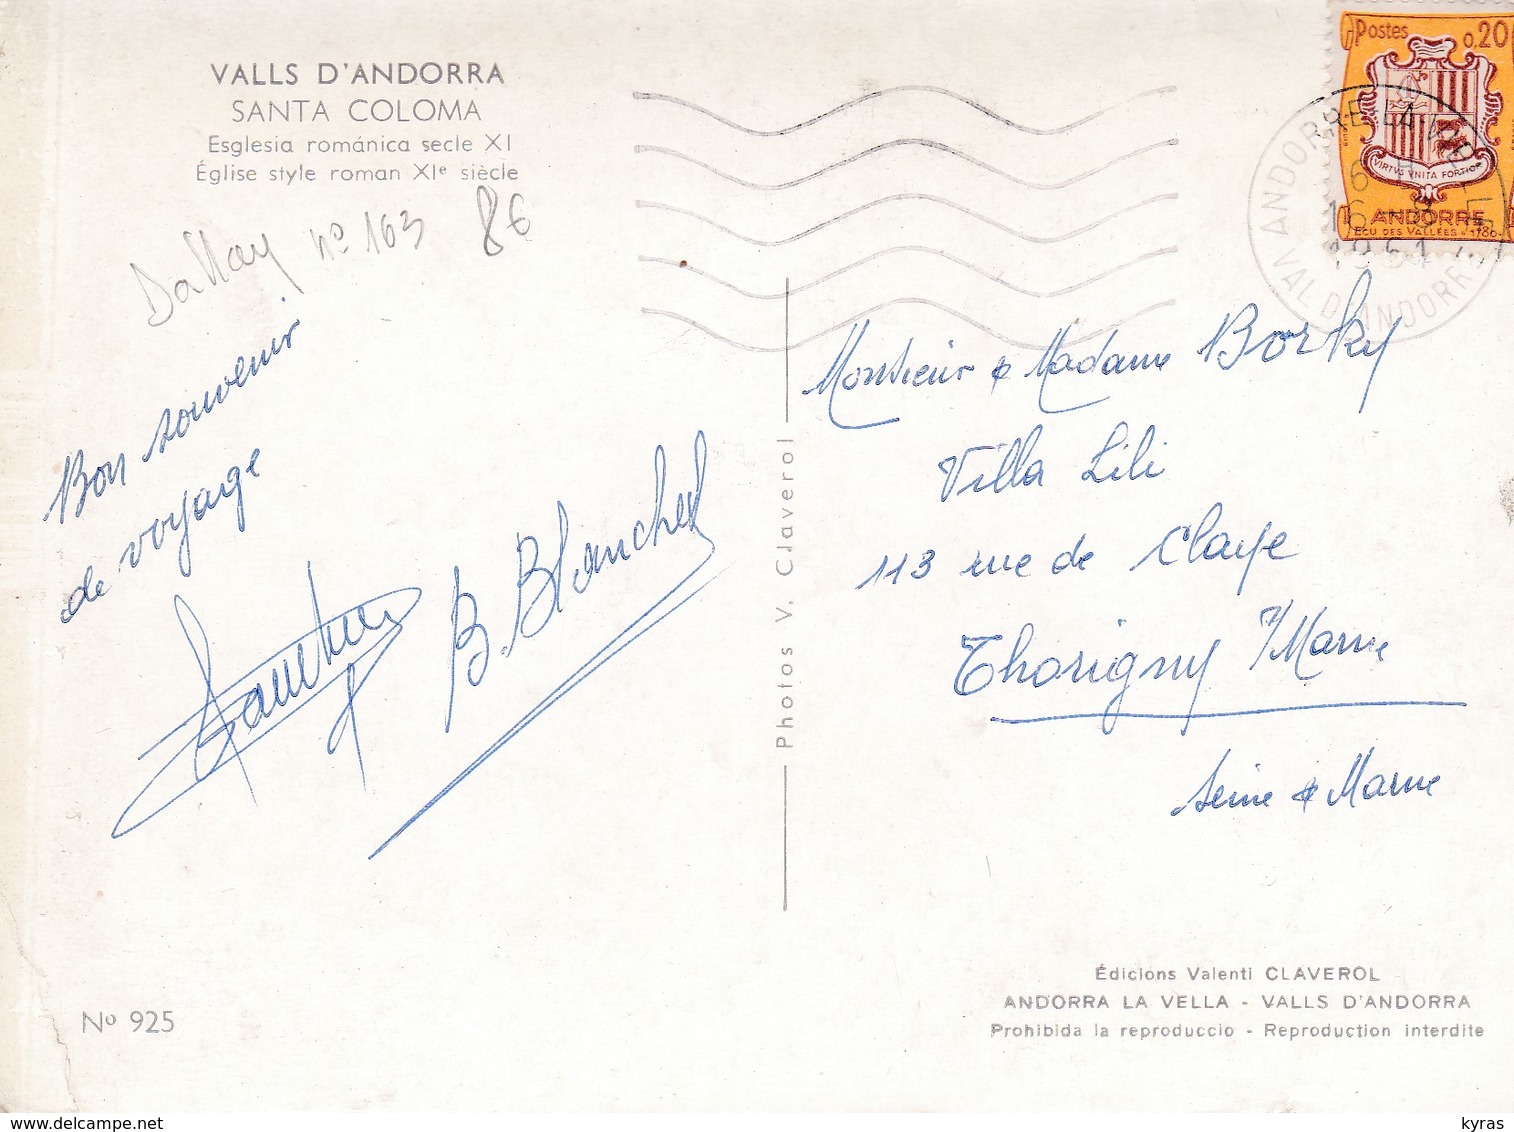 VALLS D'ANDORRA
SANTA COLOMA
Esglesia románica secle XI
Église style roman XIe siècle
Dallay nº 163 8€
Bon souvenir
de voyage
B. Blanchet
Nº 925
Photos V. Claverol
Postes 0,20
VIRTVS VNITA FORTIOR
ANDORRE
ECU DES VALLÉES - 1780
ANDORRE-LA-VIEILLE
16 H
1961
VAL D'ANDORRE
Monsieur & Madame Borky
Villa Lili
113 rue de Claye
Thorigny s/Marne
Seine & Marne
Édicions Valenti CLAVEROL
ANDORRA LA VELLA - VALLS D'ANDORRA
Prohibida la reproduccio - Reproduction interdite
delcampe.net
kyras